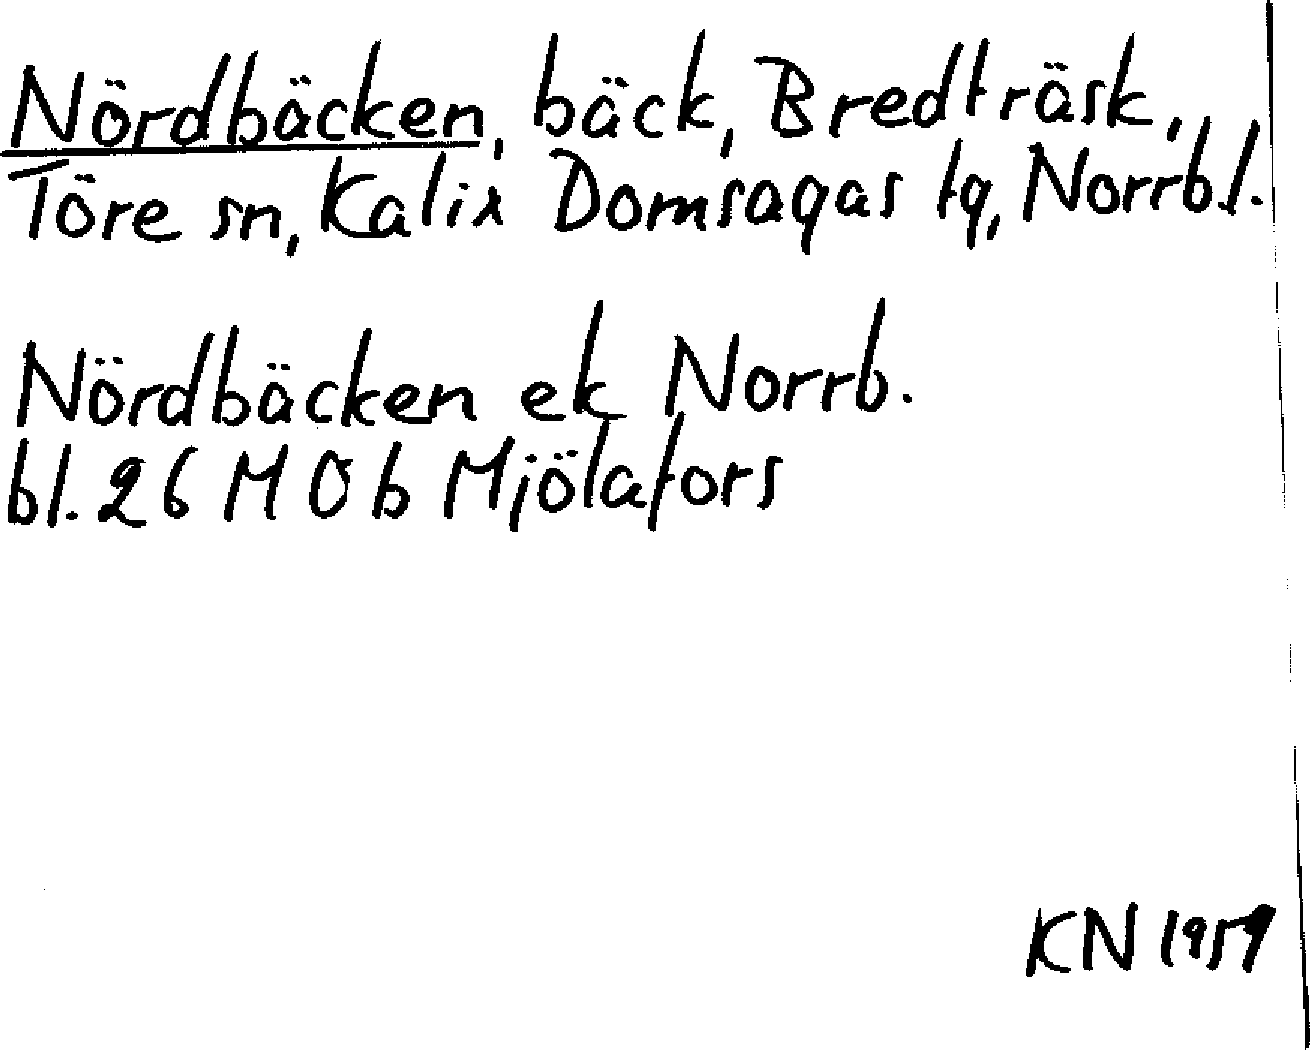 Nördbäcken, bäck, Bredträsk,
Töre sn, Kalix Domsagas tg, Norrb.l.
Nördbäcken ek Norrb.
bl. 26 MÖb Mjölafors
KN 1959